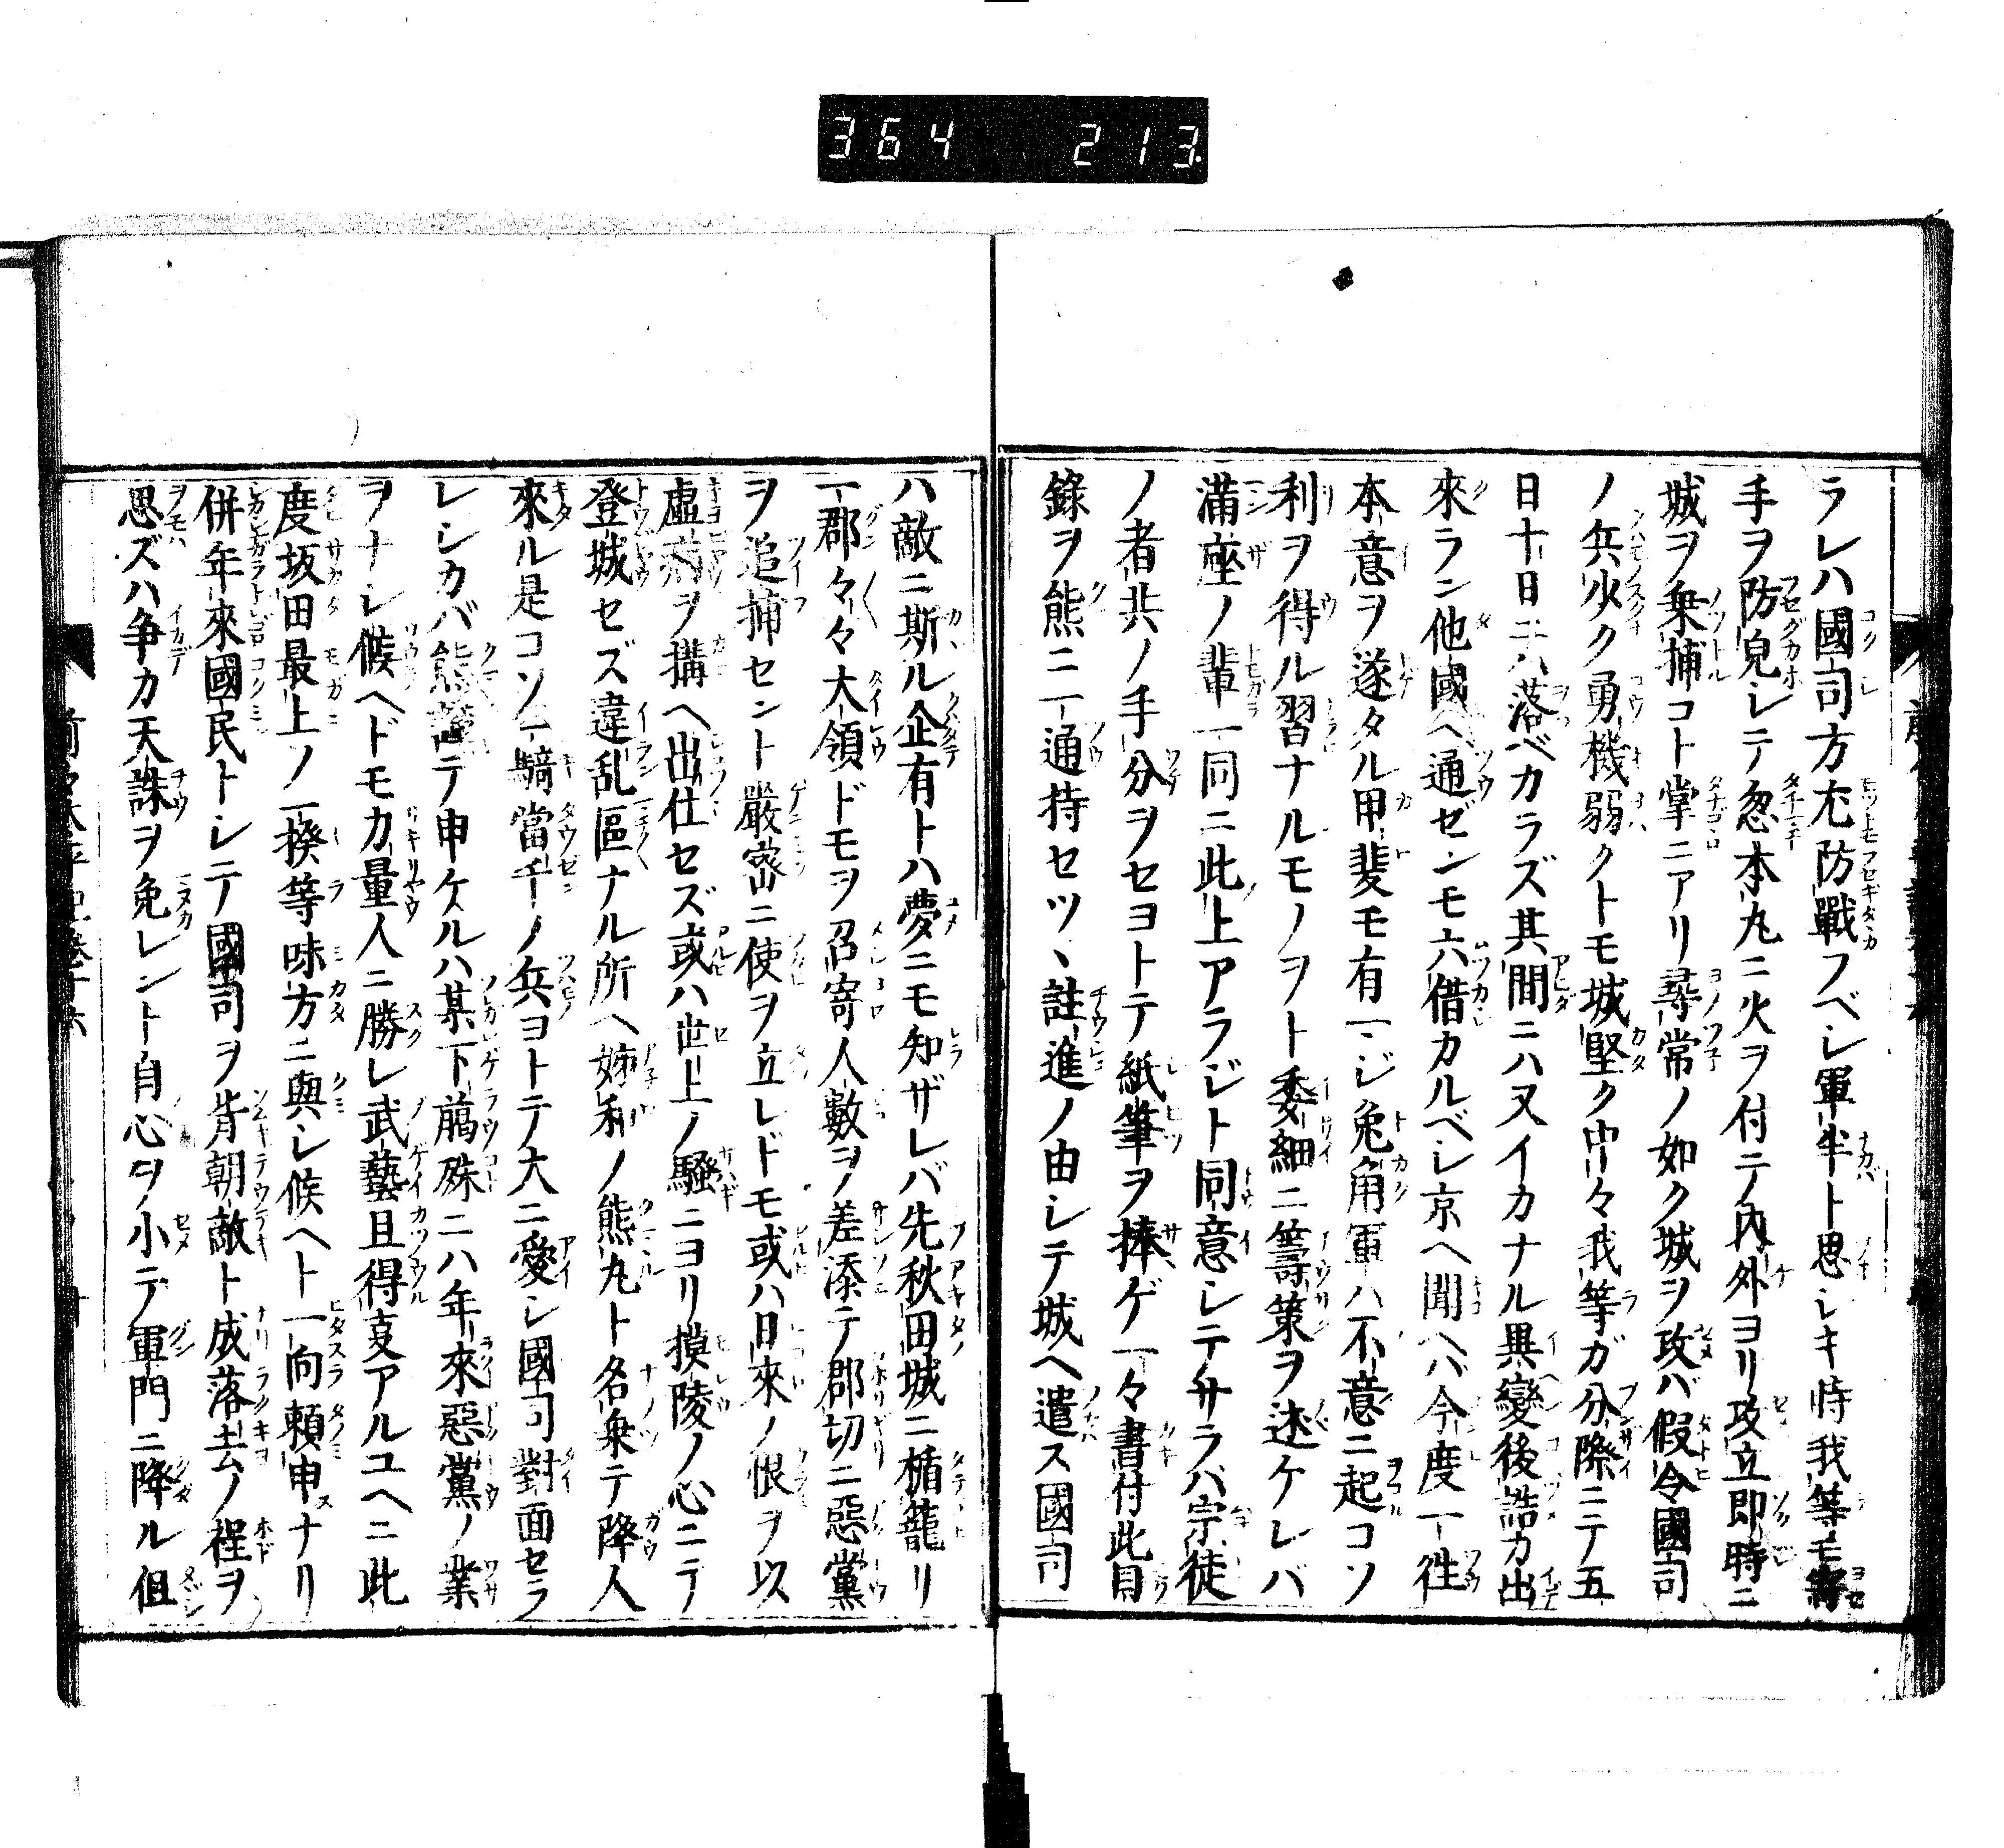 364 213
ラレハ國司方尤防戰フベシ軍半ト思シキ時我等モ寄
手ヲ防皃シテ忽本丸ニ火ヲ付テ内外ヨリ攻立即時ニ
城ヲ乗捕コト掌ニアリ尋常ノ如ク城ヲ攻バ假令國司
ノ兵少ク勇機弱クトモ城堅ク中々我等ガ分際ニテ五
日十日ニハ落ベカラズ其間ニハ又イカナル異變後詰カ出
來ラン他國ヘ通ゼンモ六借カルベシ京ヘ聞ヘバ今度一徃
本意ヲ遂タル甲斐モ有マジ兔角軍ハ不意ニ起コソ
利ヲ得ル習ナルモノヲト委細ニ籌策ヲ述ケレバ
滿座ノ輩一同ニ此上アラジト同意シテサラバ宗徒
ノ者共ノ手分ヲセヨトテ紙筆ヲ捧ゲ一々書付此目
錄ヲ熊ニ一通持セツヽ註進ノ由シテ城ヘ遣ス國司
ハ敵ニ斯ル企有トハ夢ニモ知ザレバ先秋田城ニ楯籠リ
一郡々々大領ドモヲ召寄人數ヲ差添テ郡切ニ惡黨
ヲ追捕セント嚴密ニ使ヲ立レドモ或ハ日來ノ恨ヲ以
虛病ヲ搆ヘ出仕セズ或ハ世上ノ騷ニヨリ摸陵ノ心ニテ
登城セズ違乱區ナル所ヘ姉和ノ熊丸ト名乗テ降人
來ル是コソ一騎當千ノ兵ヨトテ大ニ愛シ國司對面セラ
レシカバ熊謹テ申ケルハ某下﨟殊ニハ年來惡黨ノ業
ヲナシ候ヘドモ力量人ニ勝レ武藝且得叓アルユヘニ此
度坂田最上ノ一揆等味方ニ與シ候ヘト一向頼申ナリ
併年來國民トシテ國司ヲ背朝敵ト成落去ノ程ヲ
思ズハ争カ天誅ヲ免レント自心ヲ小テ軍門ニ降ル但